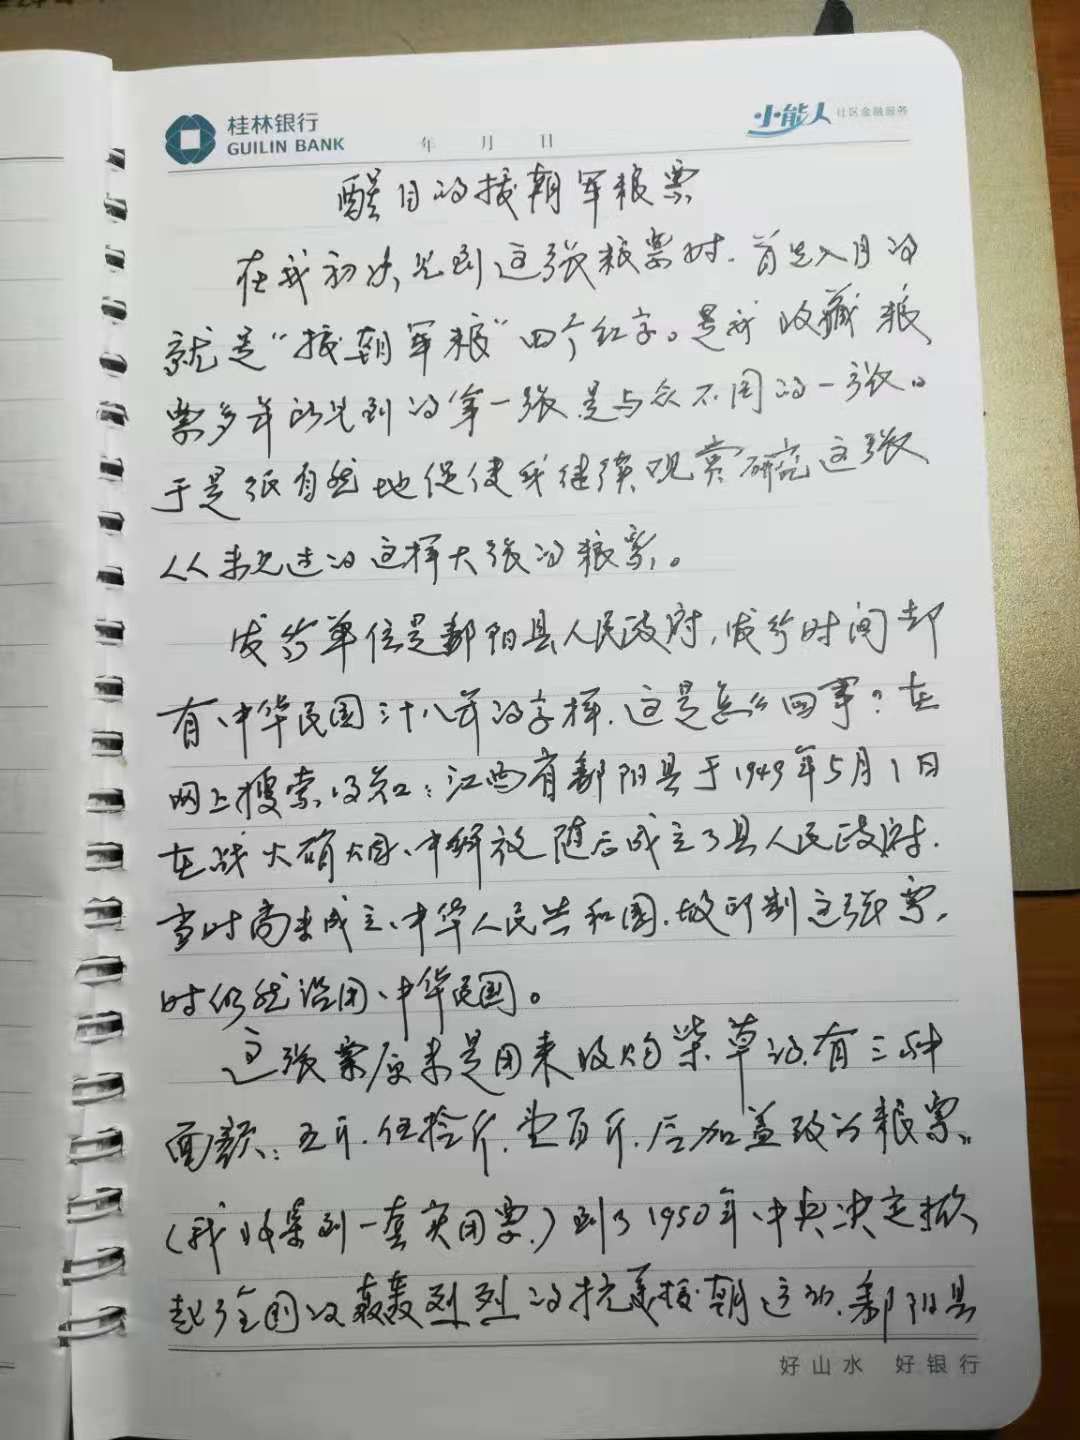 桂林银行
GUILIN BANK
年 月 日
小能人 社区金融服务
醒目的援朝军粮票
在我初次见到这张粮票时.首先入目的
就是“援朝军粮”四个红字。是我收藏粮
票多年所见到的第一张.是与众不同的一张。
于是很自然地促使我继续观赏研究这张
从未见过的这样大张的粮票。
发行单位是鄱阳县人民政府,发行时间却
有中华民国三十八年的字样.这是怎么回事?在
网上搜索得知:江西省鄱阳县于1949年5月1日
在战火硝烟中解放随后成立了县人民政府.
当时尚未成立中华人民共和国.故印制这张票
时仍然沿用中华民国。
这张票原来是用来收购柴草的.有三种
面额:五斤.伍拾斤.壹百斤.后加盖改为粮票。
(我收集到一套实用票)到了1950年中央决定掀
起全国的轰轰烈烈的抗美援朝运动.鄱阳县
好山水 好银行